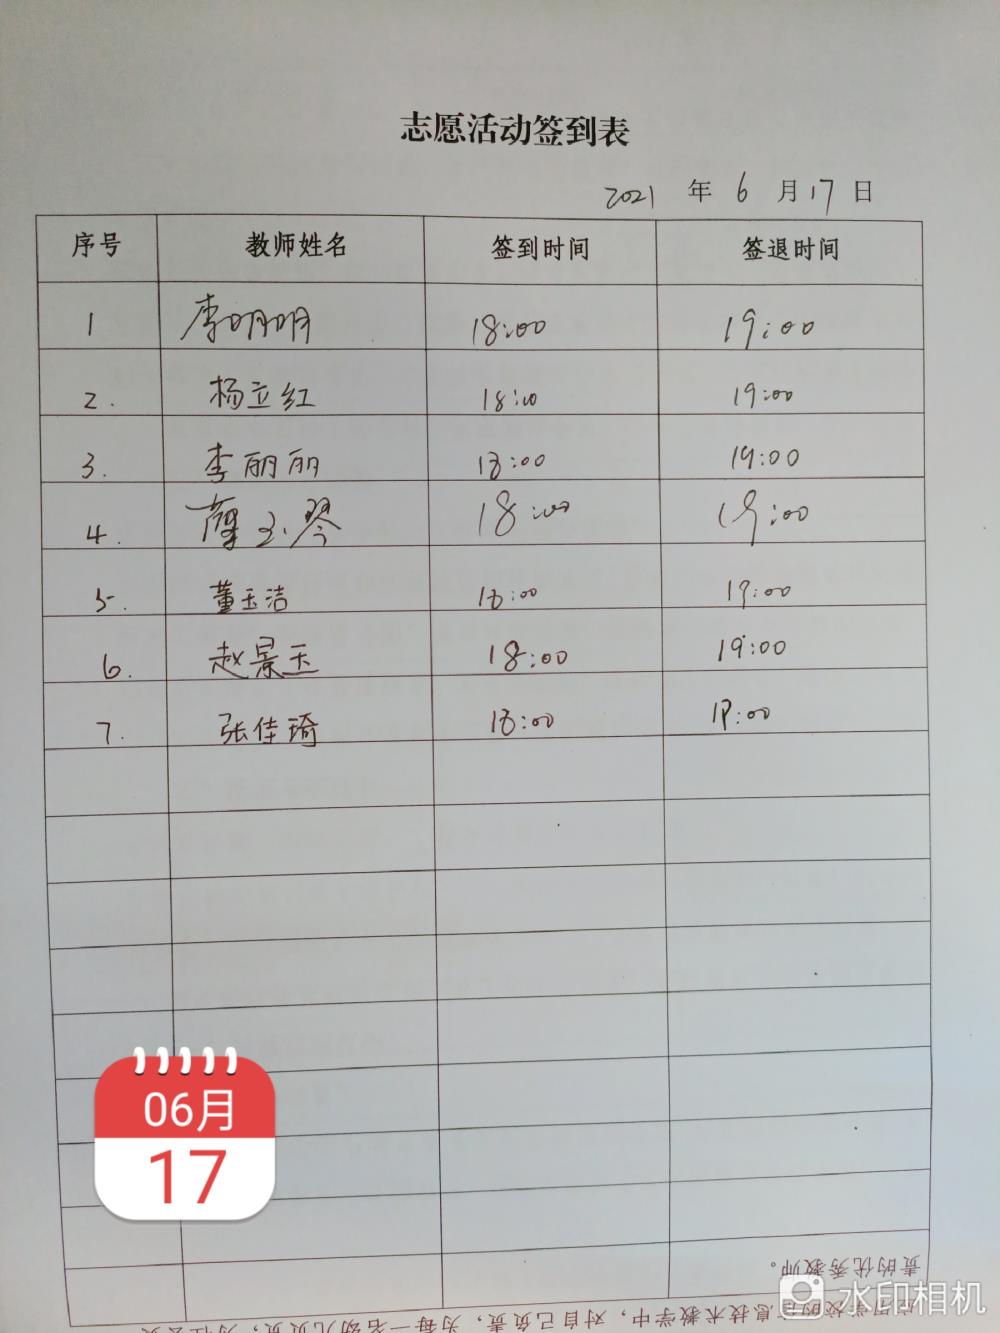 志愿活动签到表
2021 年 6 月 17 日
序号 教师姓名 签到时间 签退时间
1 李明明 18:00 19:00
2. 杨立红 18:00 19:00
3. 李丽丽 18:00 19:00
4. 薛玉琴 18:00 19:00
5. 董玉洁 18:00 19:00
6. 赵景玉 18:00 19:00
7. 张佳琦 18:00 19:00
06月
17
责的优秀教师。
息技术教学中，对自己负责，为每一名幼儿负责，为社会负
水印相机